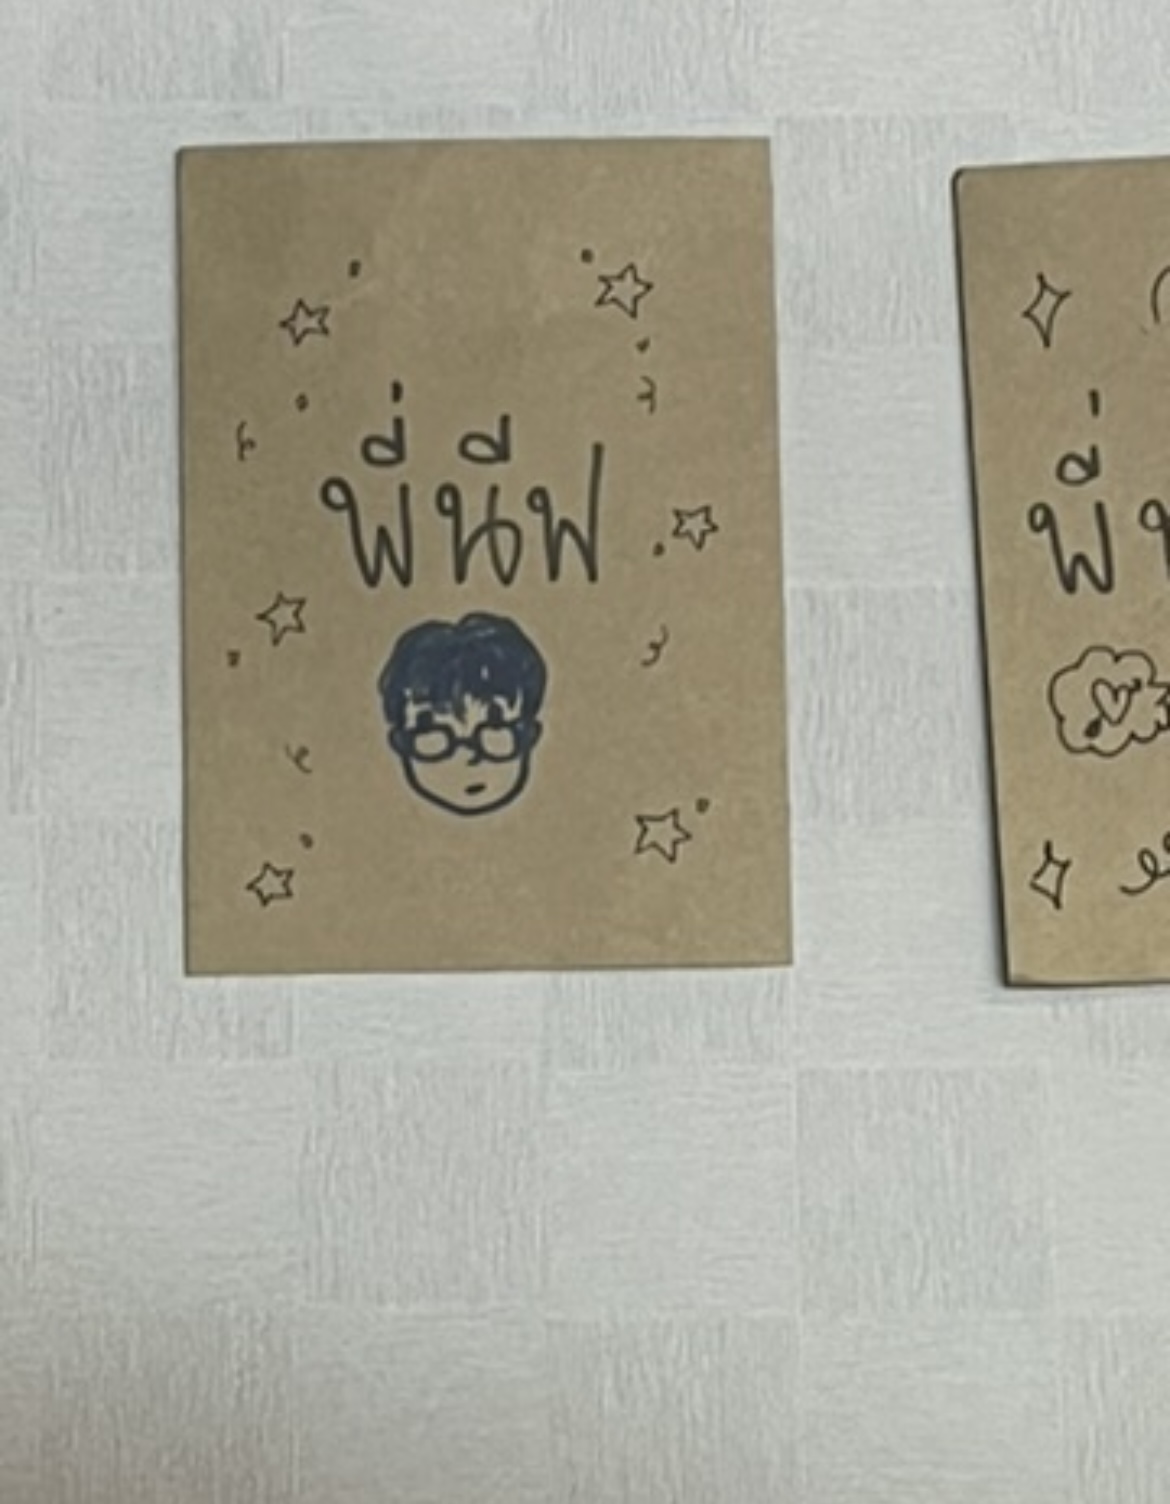 พี่นีฟ
พี่